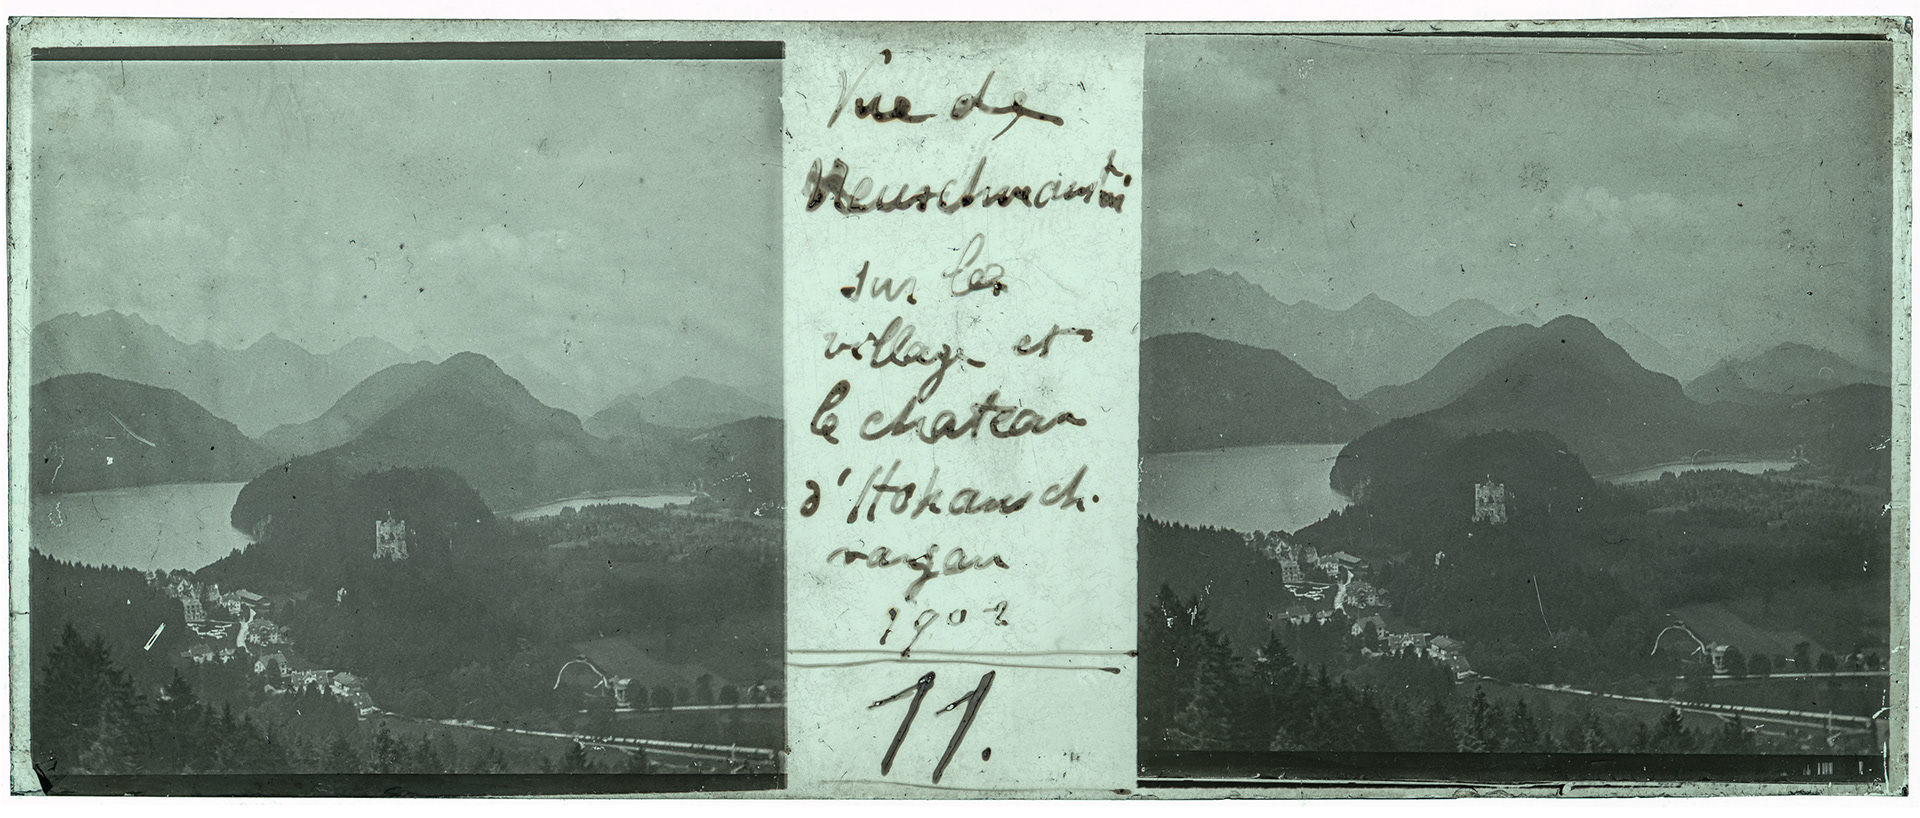 Vue de
Neuschwanstein
sur les
village et
le chateau
d'Hohansch.
vangau
1902
11.